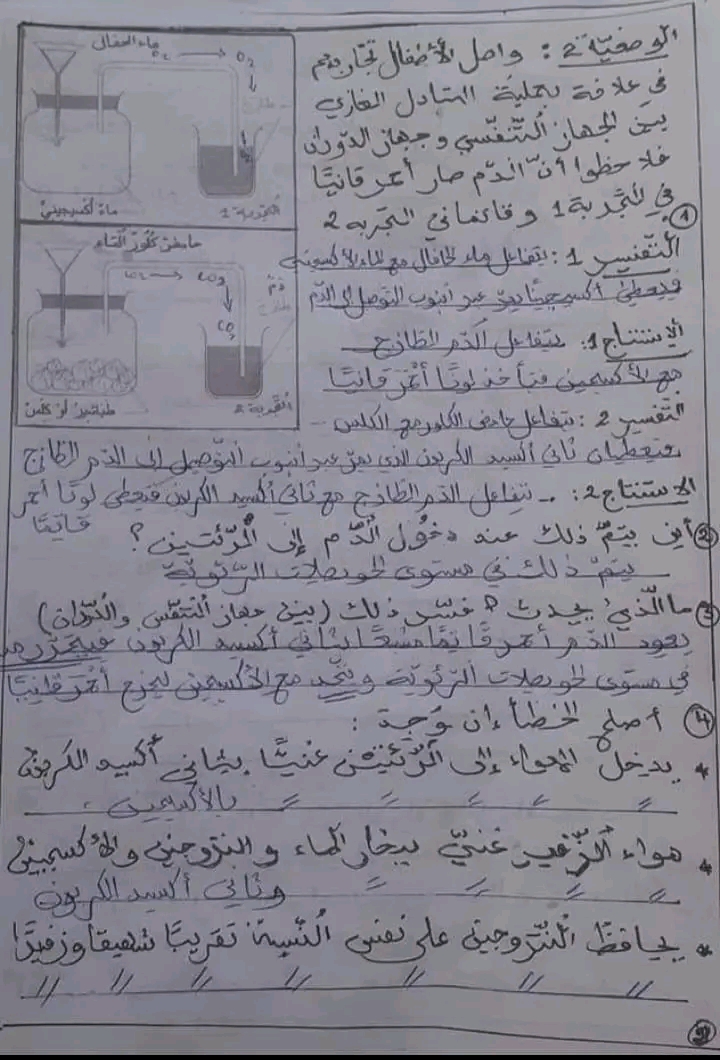 ماء الحنفال
O₂
O₂
ماء أكسيجيني
التجربة 1
حامض كلور الماء
CO₂
CO₂
دم
طازج
طباشير أو كلس
التجربة 2
الوضعية 2: واصل الأطفال تجاربهم
في علاقة بعملية التبادل الغازي
بين الجهاز التنفّسي وجهاز الدّوران
فلاحظوا أنّ الدّم صار أحمر قانيًا
في التجربة 1 وقاتما في التجربة 2
① التّفسير 1: يتفاعل ماء الجافال مع الماء الأكسجيني
فيعطي أكسيجينًا يمرّ عبر أنبوب التوصل إلى الدّم
الاستنتاج 1: يتفاعل الدّم الطازج
مع الأكسجين فيأخذ لونًا أحمر قانيًا
التّفسير 2: يتفاعل حامض الكلور مع الكلس
فيعطيان ثاني أكسيد الكربون الذي يمرّ عبر أنبوب التّوصيل إلى الدّم الطازج
الاستنتاج 2: يتفاعل الدّم الطازج مع ثاني أكسيد الكربون فيعطي لونًا أحمر
قاتمًا
② أين يتمّ ذلك عند دخول الدّم إلى الرّئتين؟
يتمّ ذلك في مستوى الحويصلات الرّئويّة
③ ما الّذي يحدث؟ فسّر ذلك (بين جهاز التنفّس والدّوران)
يعود الدّم أحمر قاتمًا مشبعًا بثاني أكسيد الكربون فيتحرّر منه
في مستوى الحويصلات الرّئويّة ويتّحد مع الأكسجين ليخرج أحمر قانيًا
④ أصلح الخطأ إن وجد:
* يدخل الهواء إلى الرّئتين غنيًّا بثاني أكسيد الكربون
// // // // // بالأكسجين.
* هواء الزّفير غنيّ ببخار الماء والنتروجين والأكسجين
// // // // وثاني أكسيد الكربون
* يحافظ النّتروجين على نفس النّسبة تقريبًا شهيقا وزفيرًا
// // // // // // //